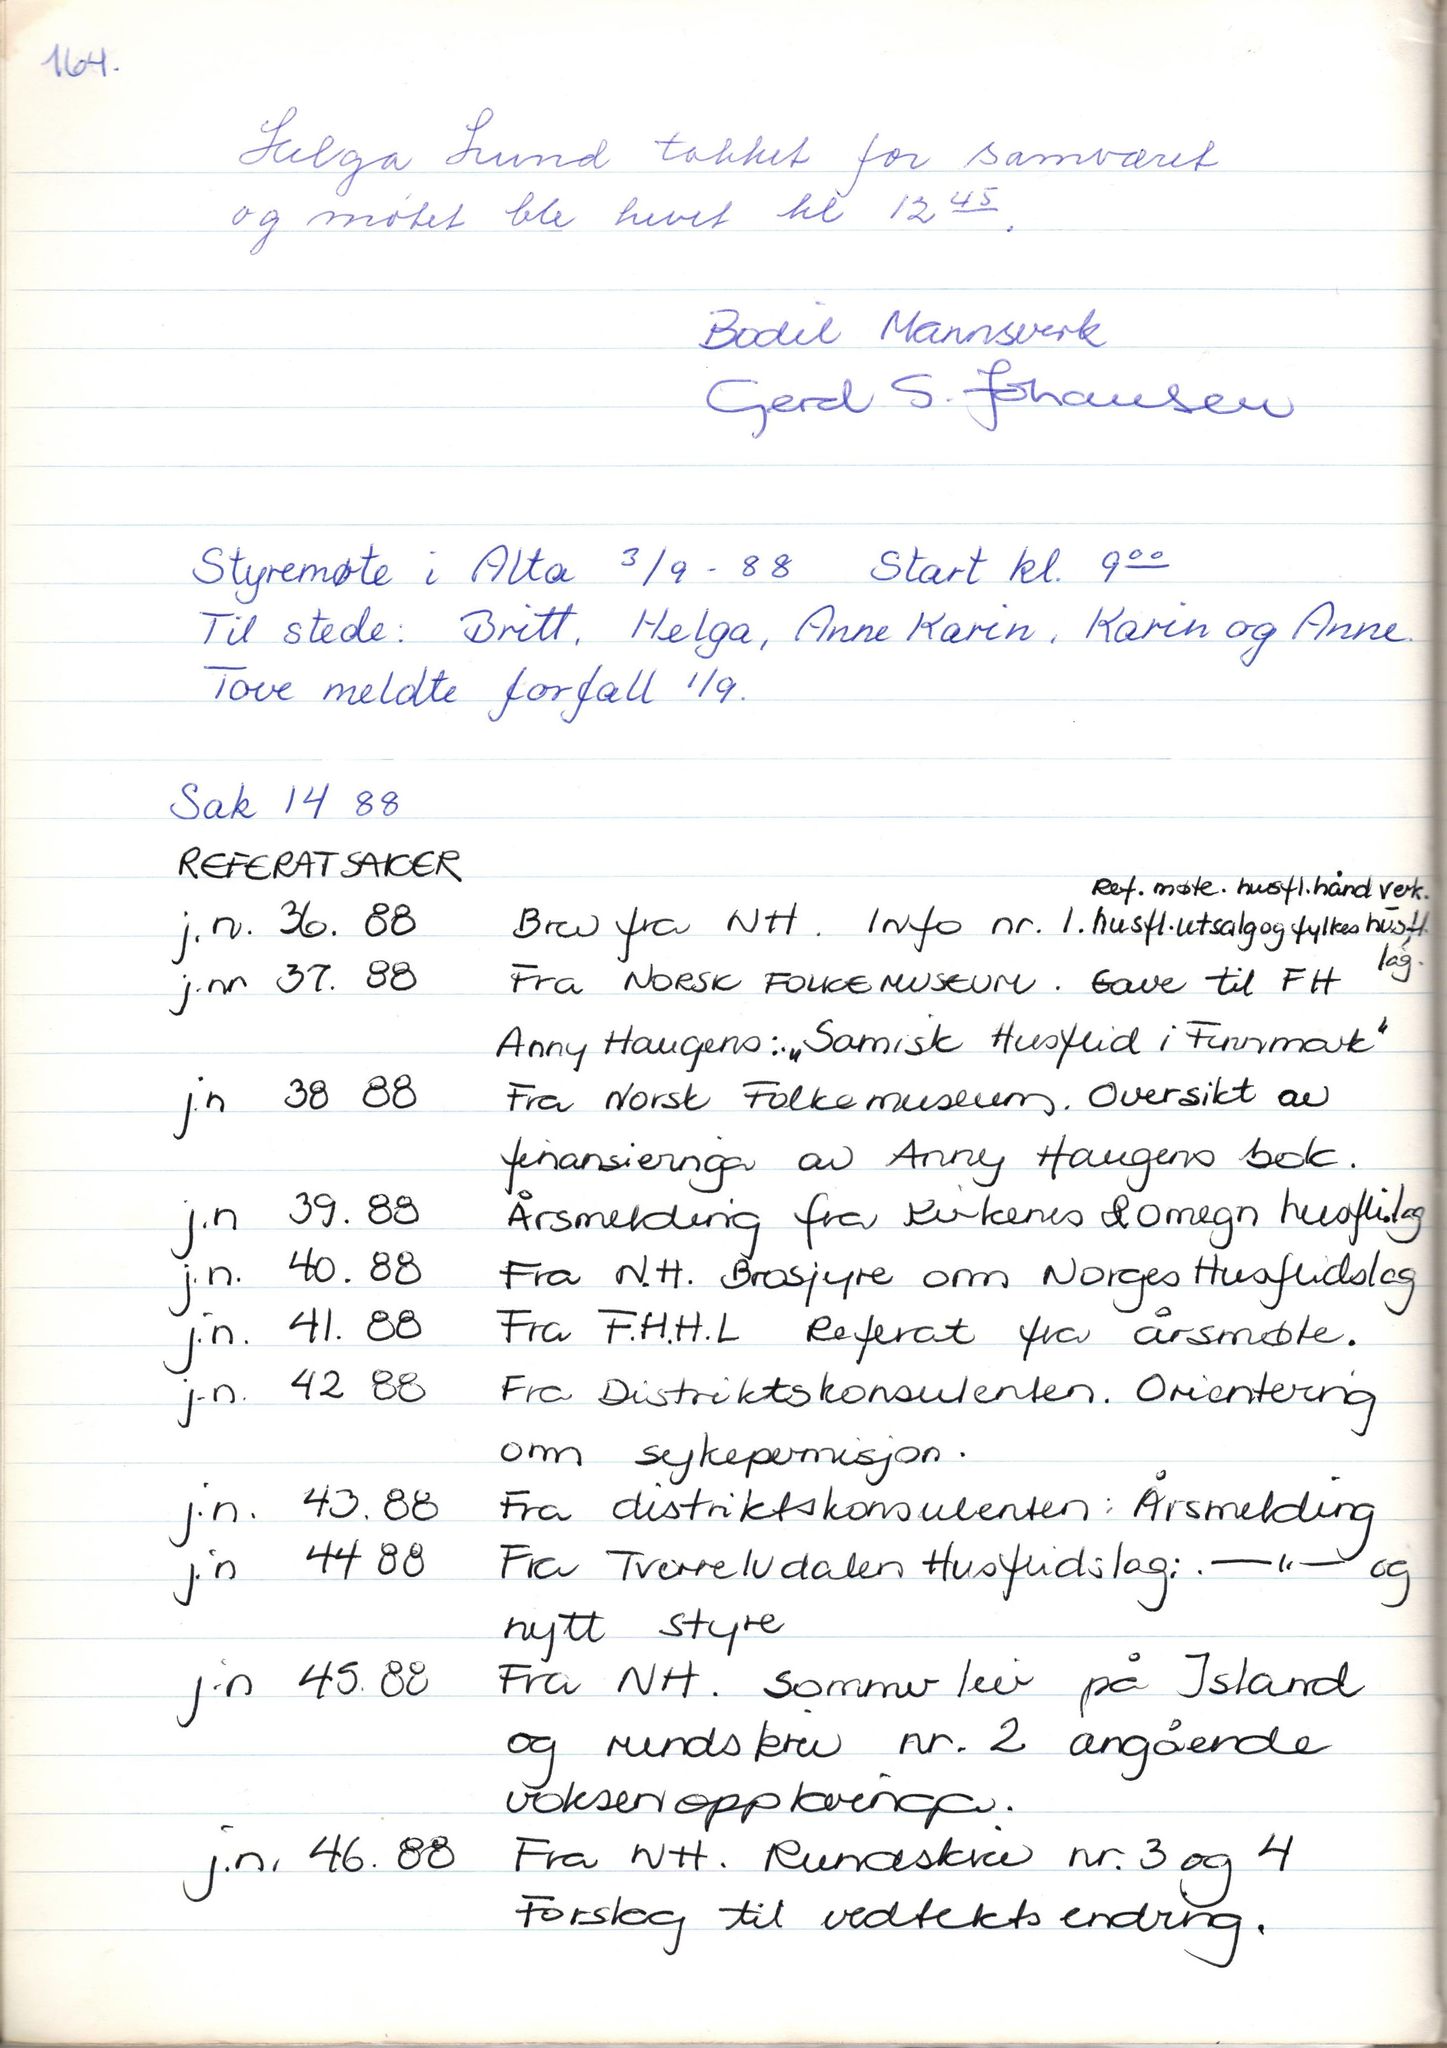 164.
Helga Lund takket for samværet
og møtet ble hevet kl 12 45.
Bodil Mannsverk
Gerd S. Johansen
Styremøte i Alta 3/9 - 88 Start kl. 9 00
Til stede: Britt, Helga, Anne Karin, Karin og Anne.
Tove meldte forfall 1/9.
Sak 14 88
REFERATSAKER
Ref. møte. husfl. håndverk.
j.n. 36. 88 Brev fra NH. Info nr. 1. husfl. utsalg og fylkes husfl.
lag.
j.nr 37. 88 Fra NORSK FOLKEMUSEUM. Gave til FH
Anny Haugens: „Samisk Husflid i Finnmark"
j.n 38 88 Fra Norsk Folkemuseum. Oversikt av
finansieringa av Anny Haugens bok.
j.n 39. 88 Årsmelding fra Kirkenes & omegn husflislag
j.n. 40. 88 Fra N.H. Brosjyre om Norges Husflidslag
j.n. 41. 88 Fra F.H.H.L Referat fra årsmøte.
j.n. 42 88 Fra Distriktskonsulenten. Orientering
om sykepermisjon.
j.n. 43. 88 Fra distriktskonsulenten: Årsmelding
j.n 44 88 Fra Tverrelvdalen Husflidslag: . —"— og
nytt styre
j.n 45. 88 Fra NH. Sommerleir på Island
og rundskriv nr. 2 angående
voksenopplæringa.
j.n. 46. 88 Fra NH. Rundskriv nr. 3 og 4
Forslag til vedtektsendring.